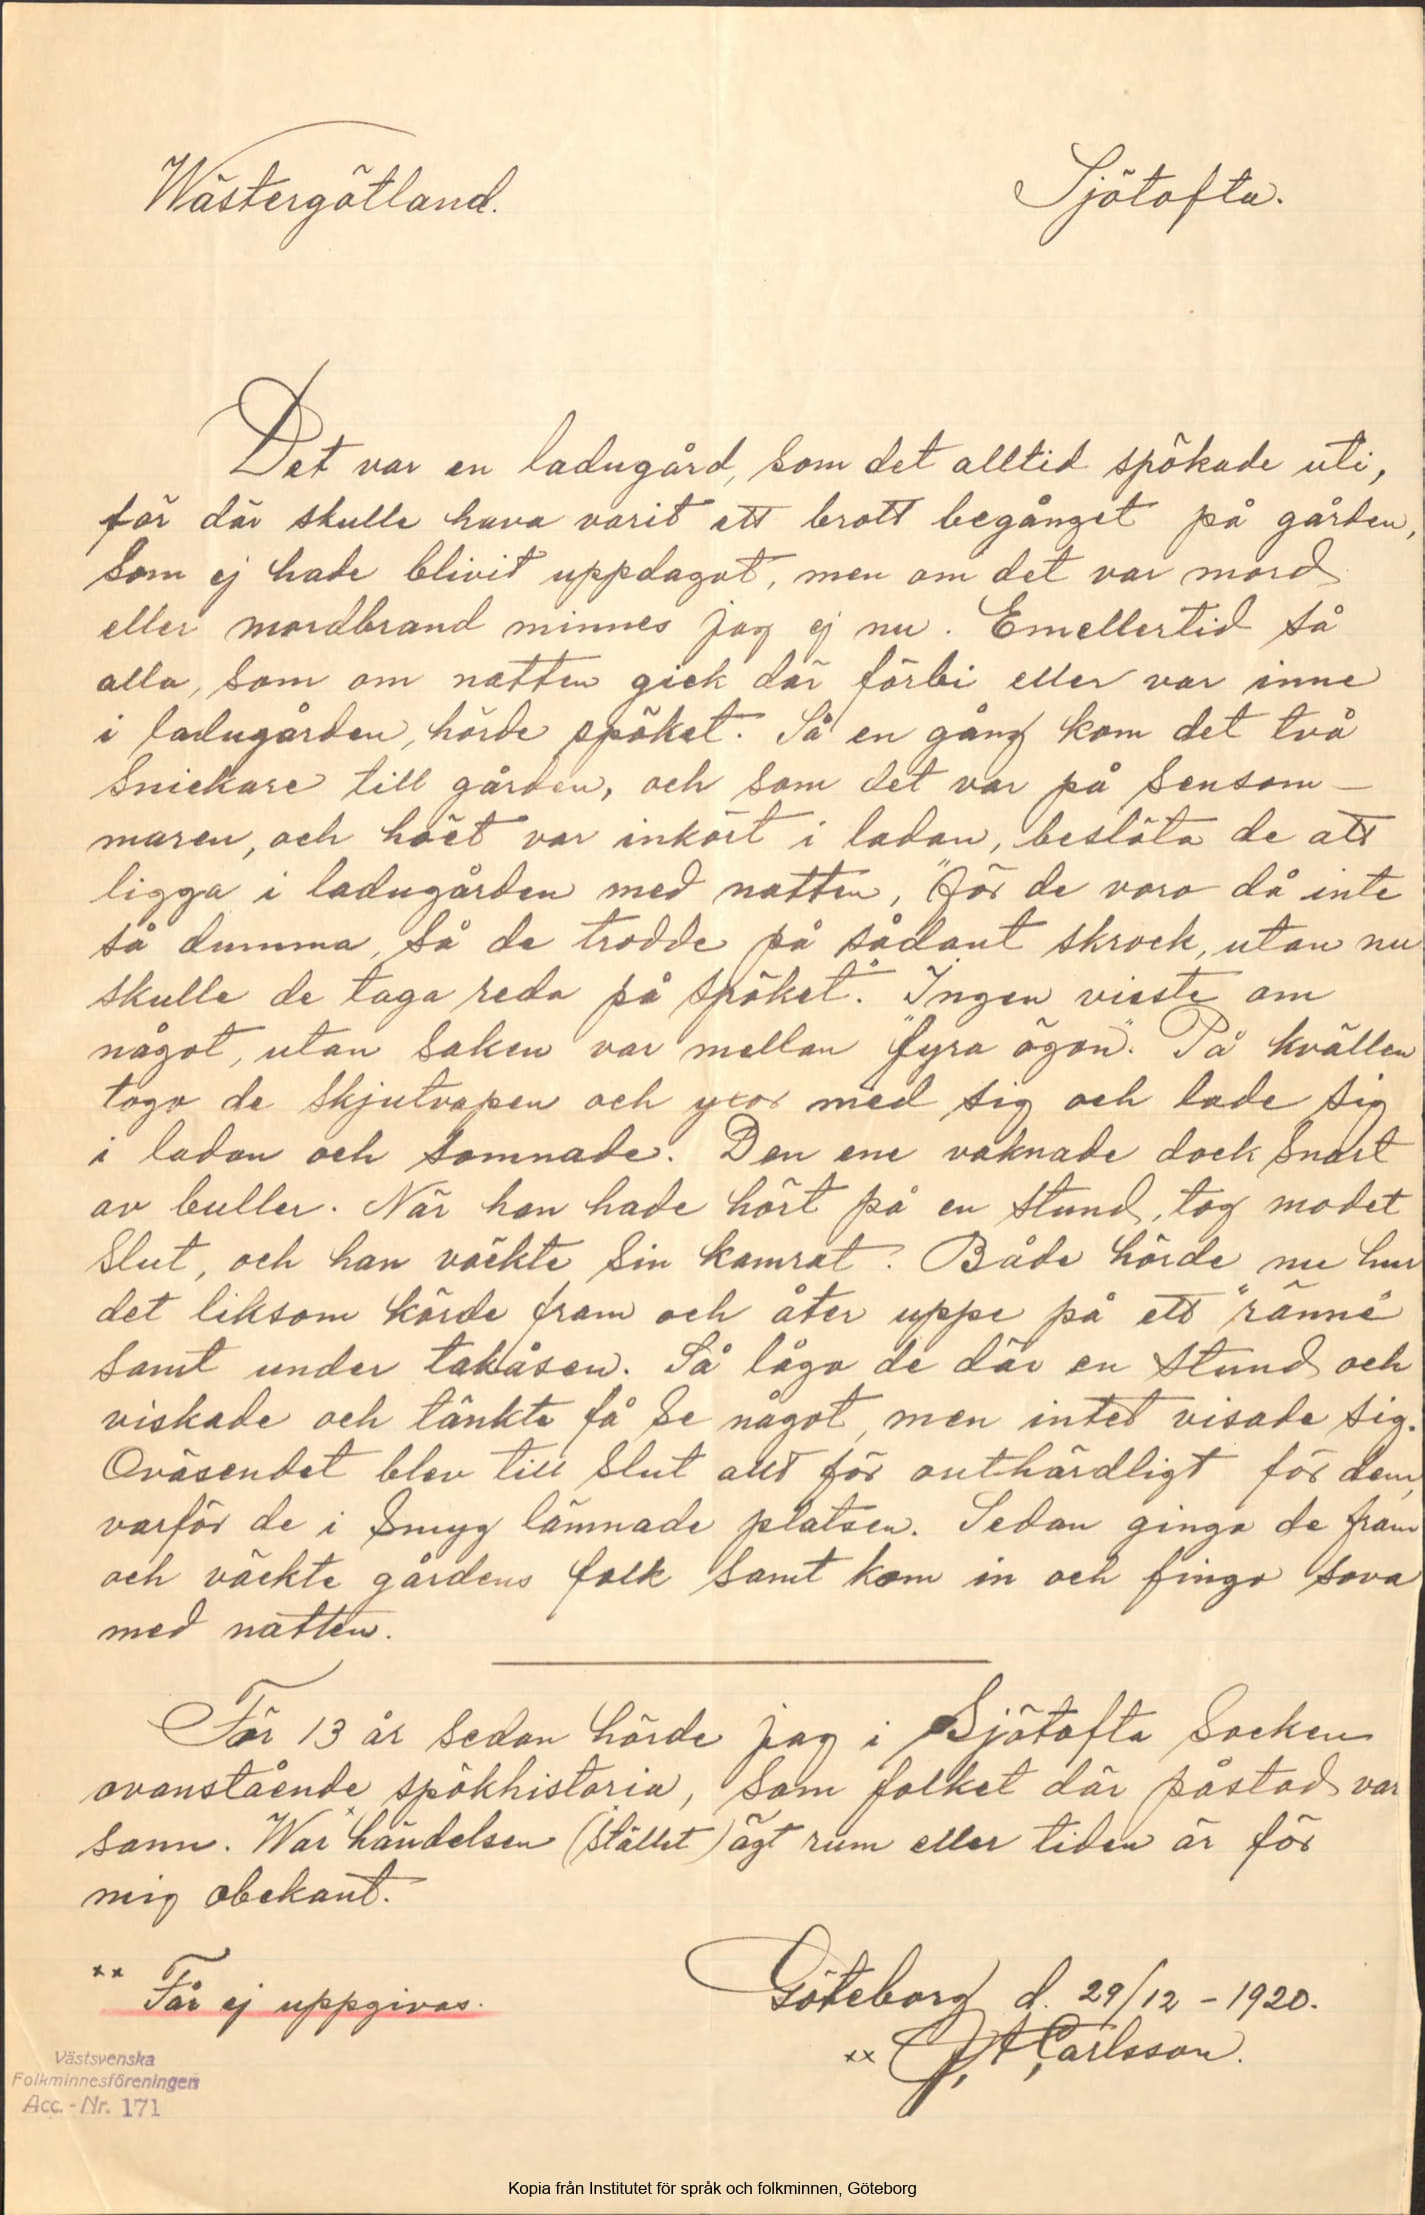 Wästergötland. Sjötofta.
Det var en ladugård, som det alltid spökade uti,
för där skulle hava varit ett brott begånget på gården,
som ej hade blivit uppdagat, men om det var mord
eller mordbrand minnes jag ej nu. Emellertid så
alla, som om natten gick där förbi eller var inne
i ladugården, hörde spöket. Så en gång kom det två
snickare till gården, och som det var på sensom-
maren, och höet var inkört i ladan, beslöto de att
ligga i ladugården med natten, "för de voro då inte
så dumma, så de trodde på sådant skrock, utan nu
skulle de taga reda på spöket". Ingen visste om
något, utan saken var mellan "fyra ögon". På kvällen
togo de skjutvapen och yxor med sig och lade sig
i ladan och somnade. Den ene vaknade dock snart
av buller. När han hade hört på en stund, tog modet
slut, och han väckte sin kamrat. Både hörde nu hur
det liksom körde fram och åter uppe på ett "ränne"
samt under takåsen. Så lågo de där en stund och
viskade och tänkte få se något, men intet visade sig.
Oväsendet blev till slut allt för outhärdligt för dem,
varför de i smyg lämnade platsen. Sedan gingo de fram
och väckte gårdens folk samt kom in och fingo sova
med natten.
För 13 år sedan hörde jag i Sjötofta socken
ovanstående spökhistoria, som folket där påstod var
sann. War händelsen (stället) ägt rum eller tiden är för
mig obekant.
xx Får ej uppgivas.
Göteborg d. 29/12 - 1920.
xx Carlsson.
Västsvenska
Folkminnesföreningen
Acc.-Nr. 171
Kopia från Institutet för språk och folkminnen, Göteborg